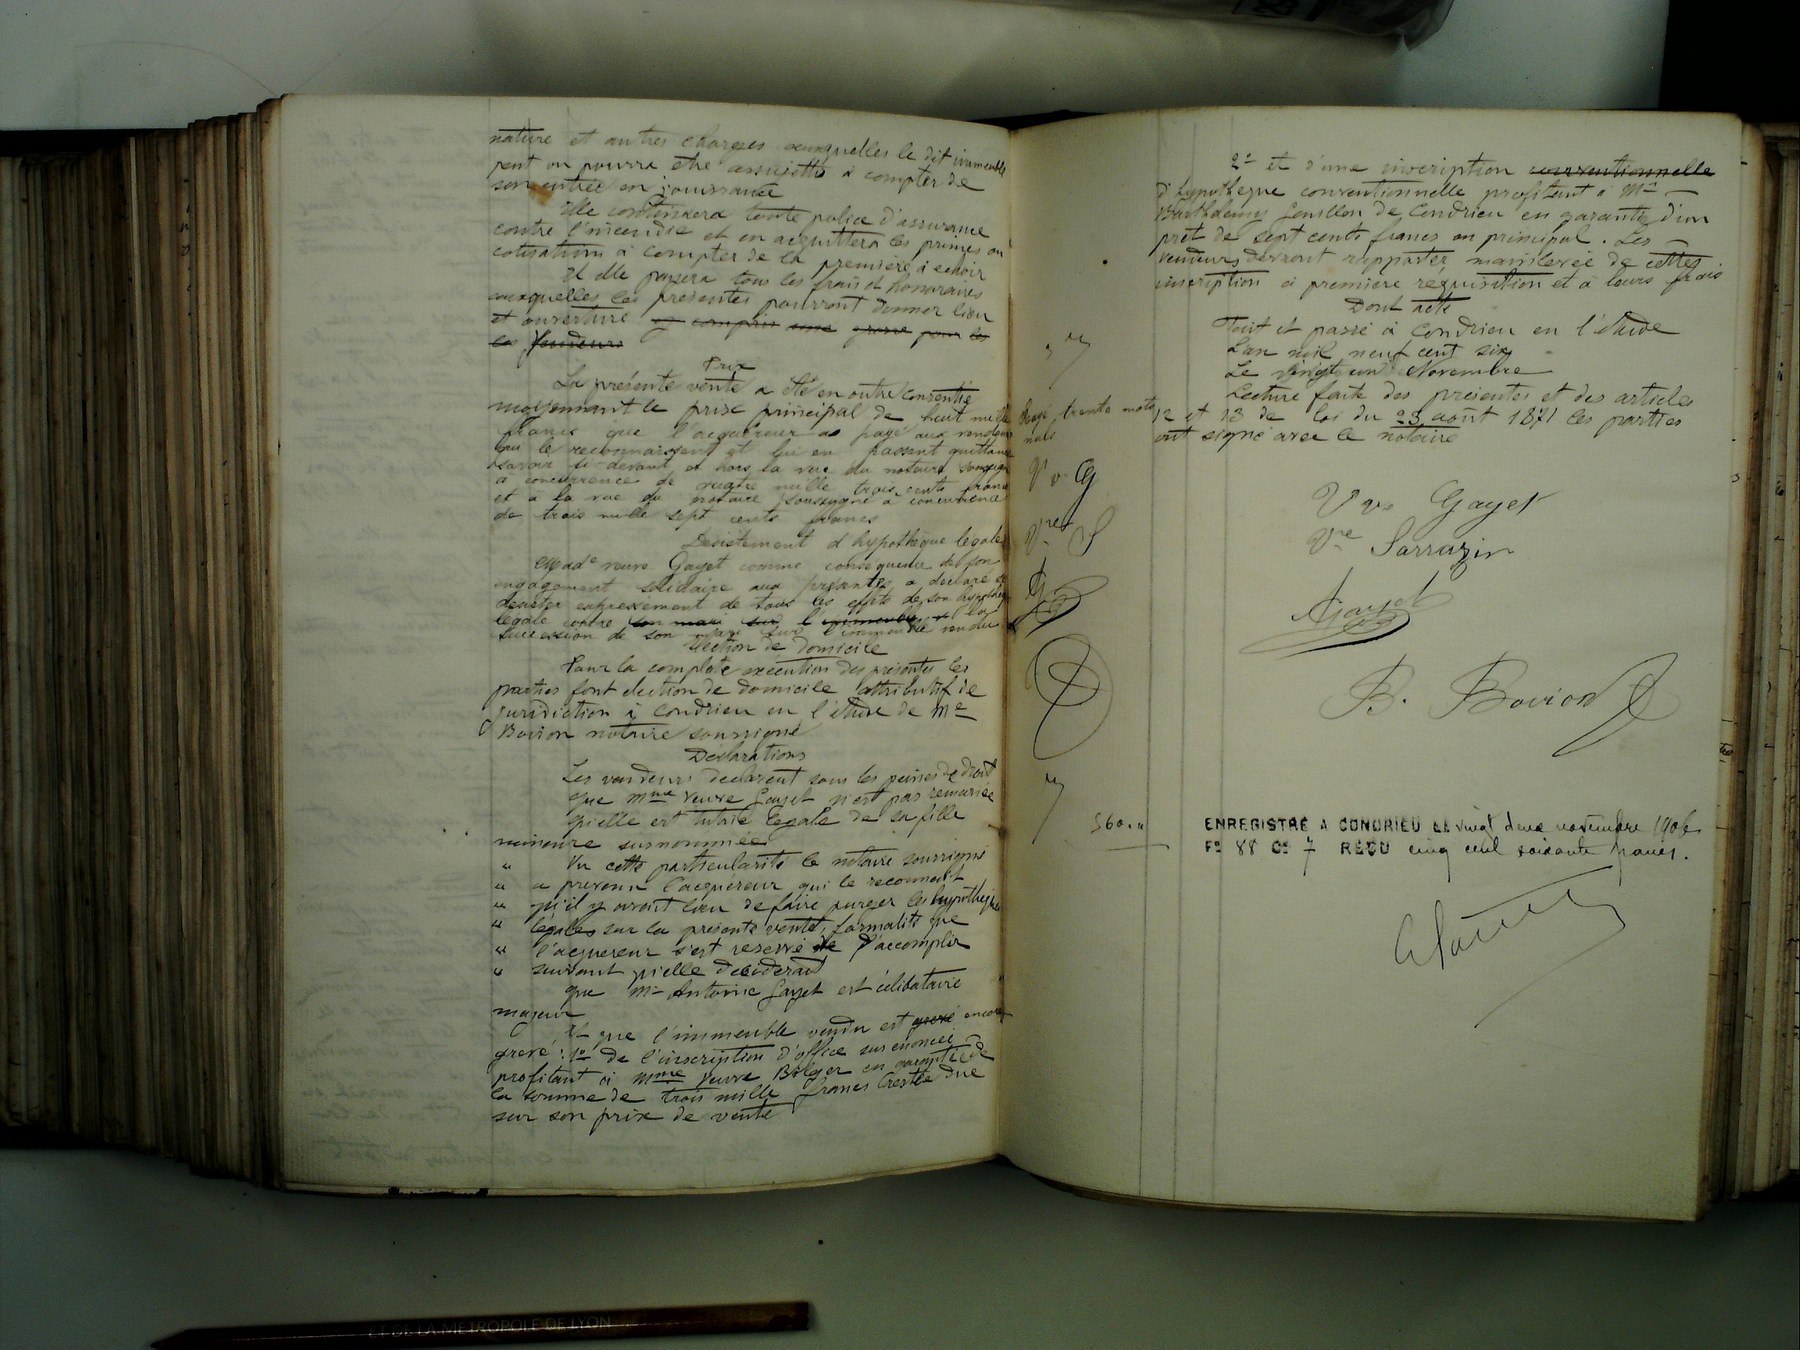 nature et autres charges auxquelles le dit immeuble
peut ou pourra etre assujetti à compter de
son entrée en jouissance
Elle continuera toute police d'assurance
contre l'incendie et en acquittera les primes ou
cotisations à compter de la première à échoir
Et elle payera tous les frais et honoraires
auxquelles les présentes pourront donner lieu
et ouverture y compris une grosse pour les
les
Prix
La présente vente a été en outre consentie
moyennant le prix principal de huit mille
francs que l'acquéreur a payé aux vendeurs
qui le reconnaissent et lui en passent quittance
savoir ci-devant et hors la vue du notaire soussigné
à concurrence de quatre mille trois cents francs
et à la vue du notaire soussigné à concurrence
de trois mille sept cents francs
Desistement d'hypothèque légale
Made veuve Gayet comme conséquence de son
engagement solidaire aux présentes a déclaré se
desister expressement de tous les effets de son hypothèque
légale contre son mari sur l'immeuble la
succession de son mari sur l'immeuble vendu
Election de domicile
Pour la complète exécution des présentes les
parties font election de domicile attributif de
juridiction à Condrieu en l'étude de Me
Bovion notaire soussigné
Déclarations
Les vendeurs declarent sous les peines de droit
que Mme veuve Gayet n'est pas remariée
qu'elle est tutrice légale de sa fille
mineure surnommée
" Vu cette particularité le notaire soussigné
" a prévenu l'acquéreur qui le reconnait
" qu'il y avait lieu de faire purger les hypothèques
" légales sur la présente vente, formalité que
" l'acquereur s'est reservé de d'accomplir
" suivant qu'elle déciderait
que Mr Antoine Gayet est célibataire
majeur
Et que l'immeuble vendu est grevé encore
grevé : 1o de l'inscription d'office susénoncée
profitant à Mme veuve Bolger en garantie de
la somme de trois mille francs restée due
sur son prix de vente
2o et d'une inscription conventionnelle
d'hypothèque conventionnelle profitant à Mr
Barthélemy Genillon de Condrieu en garantie d'un
prêt de sept cents francs en principal. Les
vendeurs devront rapporter mainlevée de cettes
inscription à première requisition et à leurs frais
Dont acte
Fait et passé à Condrieu en l'étude
L'an mil neuf cent six
Le vingt un Novembre
Lecture faite des présentes et des articles
12 et 13 de loi du 23 août 1871 les parties
ont signé avec le notaire
Rayé trente mots
nuls
Vve G
Vve S
Vve Gayet
Ve Sarrazin
AGayet
B. Bovion
560.
ENREGISTRÉ A CONDRIEU LE vingt deux novembre 1906
Fo 88 Co 7 REÇU cinq cent soixante francs.
ET DE LA METROPOLE DE LYON